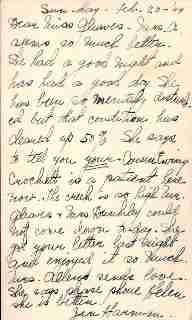 Sunday - Feb. 20-49
Dear Miss Gleaves - Mrs. A
seems so much better.
She had a good night and
has had a good day. She
has been so mentally
ed but that condition has
cleared up 50%. She says
to tell you your
Crockett is a patient here
now.
Gleaves + Mrs could
not come down today. She
got your letter last night
and enjoyed it so much.
Mrs. sends love.
She says please phone Helen
she is better.
Jen Harmon